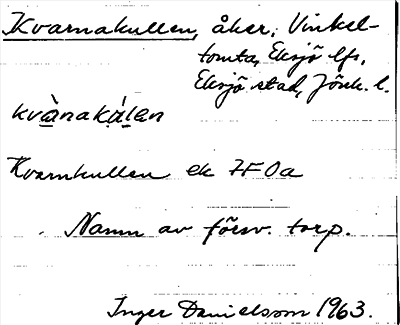 Kvarnakullen, åker; Vinkel-
tomta, Eksjö lfs,
Eksjö stad, Jönk. l.
kvànakúlen
Kvarnkullen ek 7F0a
Namn av försv. torp.
Inger Danielsson 1963.